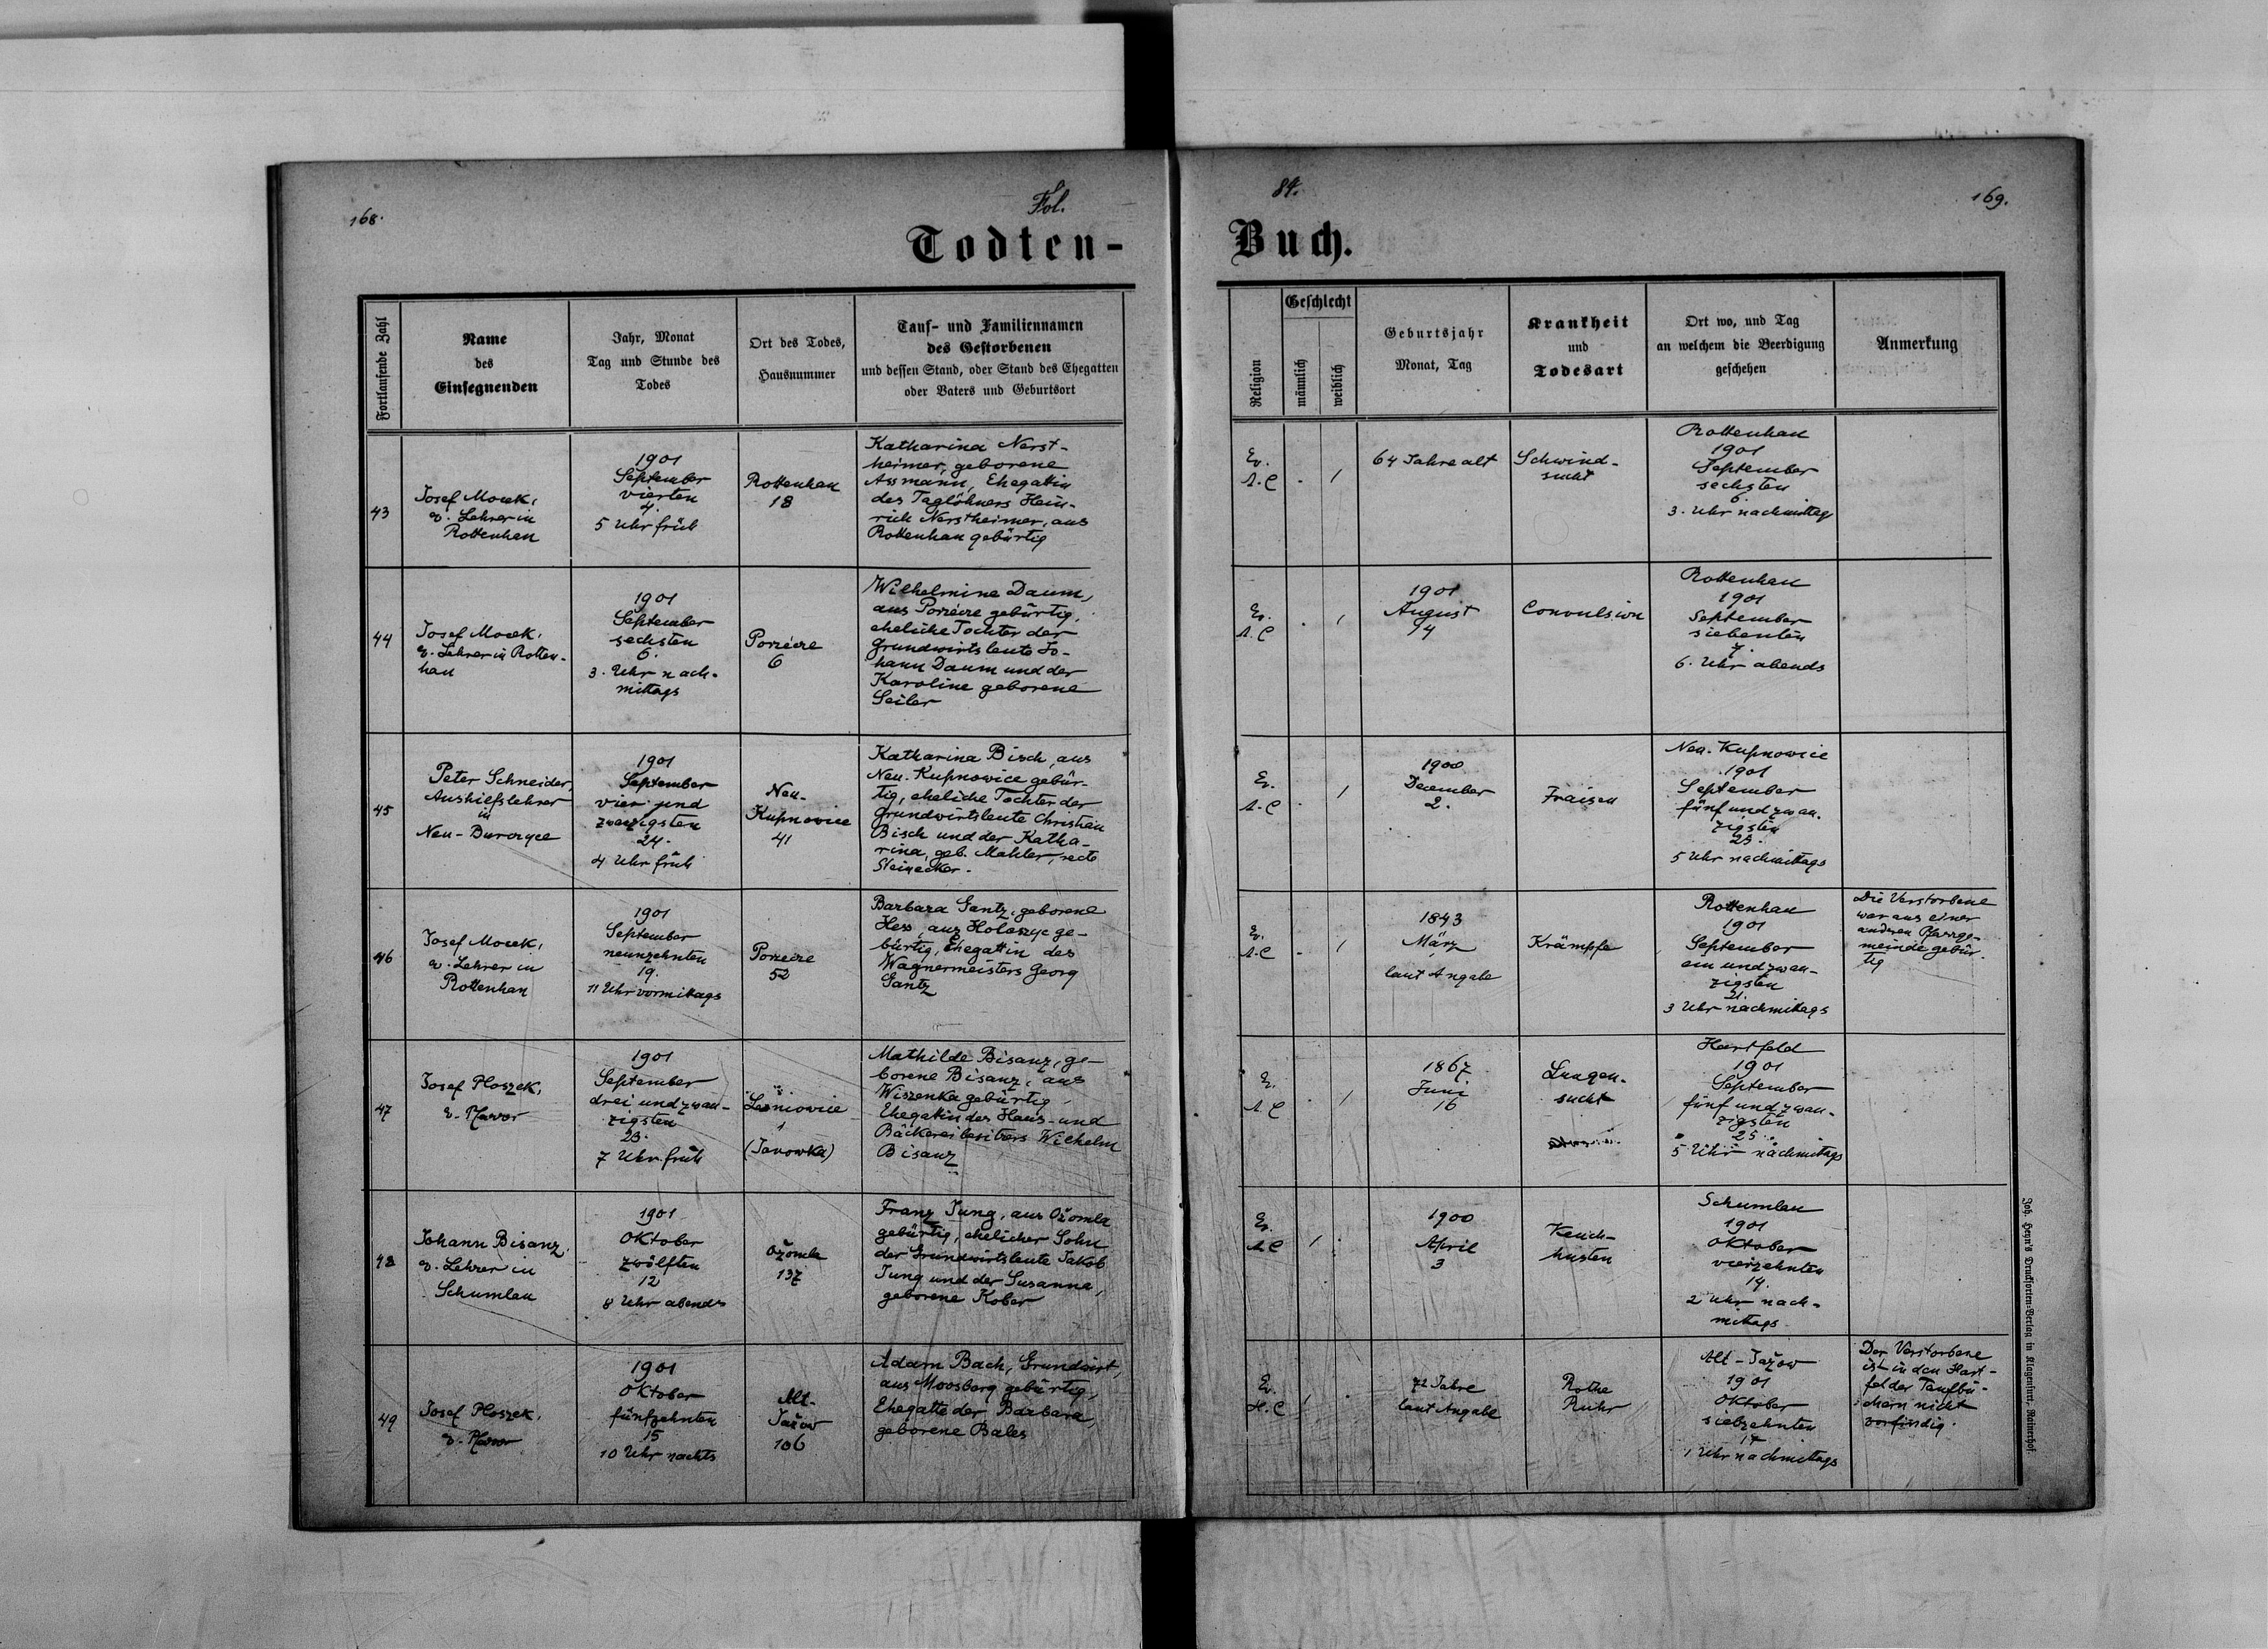 168.
Fol.
84.
169.
Todten-
Buch.
Fortlaufende Zahl
Name
des
Einsegnenden
Jahr, Monat
Tag und Stunde des
Todes
Ort des Todes,
Hausnummer
Tauf- und Familiennamen
des Gestorbenen
und dessen Stand, oder Stand des Ehegatten
oder Vaters und Geburtsort
Religion
Geschlecht
männlich
weiblich
Geburtsjahr
Monat, Tag
Krankheit
und
Todesart
Ort wo, und Tag
an welchem die Beerdigung
geschehen
Anmerkung
43
Josef Mocek,
ev. Lehrer in
Rottenhan
1901
September
vierten
4.
5 Uhr früh
Rottenhan
18
Katharina Nerst-
heimer, geborene
Assmann, Ehegattin
des Taglöhners Hein-
rich Nerstheimer, aus
Rottenhan gebürtig
Ev.
A. C
1
64 Jahre alt
Schwind-
sucht
Rottenhan
1901
September
sechsten
6.
3. Uhr nachmittag
44
Josef Mocek,
ev. Lehrer in Rotten-
han
1901
September
sechsten
6.
3. Uhr nach-
mittags
Porzecze
6
Wilhelmine Daum,
aus Porzecze gebürtig,
eheliche Tochter der
Grundwirtsleute Jo-
hann Daum und der
Karoline geborene
Seiler
Ev.
A. C
1
1901
August
14
Convulsion
Rottenhan
1901
September
siebenten
7.
6. Uhr abends
45
Peter Schneider,
Aushilfslehrer
in
Neu-Burczyce
1901
September
vier und
zwanzigsten
24.
4 Uhr früh
Neu-
Kupnowice
41
Katharina Bisch, aus
Neu-Kupnowice gebür-
tig, eheliche Tochter der
Grundwirtsleute Christian
Bisch und der Katha-
rina, geb. Mahler, recte
Steinecker.
Ev.
A. C
1
1900
December
2.
Fraisen
Neu-Kupnowice
1901
September
fünf und zwan-
zigsten
25.
5 Uhr nachmittags
46
Josef Mocek,
ev. Lehrer in
Rottenhan
1901
September
neunzehnten
19.
11 Uhr vormittags
Porzecze
52
Barbara Gantz, geborene
Hess, aus Holoszyc ge-
bürtig, Ehegattin des
Wagnermeisters Georg
Gantz
Ev.
A. C
1
1843
März
laut Angabe
Krämpfe
Rottenhan
1901
September
ein und zwan-
zigsten
21.
3 Uhr nachmittags
Die Verstorbene
war aus einer
anderen Pfarrge-
meinde gebür-
tig
47
Josef Ploszek,
ev. Pfarrer
1901
September
drei und zwan-
zigsten
23.
7 Uhr früh
Leśniowice
1
(Janowka)
Mathilde Bisanz, ge-
borene Bisanz, aus
Wiszenka gebürtig,
Ehegattin des Haus- und
Bäckereibesitzers Wilhelm
Bisanz
Ev.
A C
1
1867
Juni
16
Lungen-
sucht
Hartfeld
1901
September
fünf und zwan-
zigsten
25.
5 Uhr nachmittags
48
Johann Bisanz,
ev. Lehrer in
Schumlau
1901
Oktober
zwölften
12
8 Uhr abends
Ożomla
137
Franz Jung, aus Ożomla
gebürtig, ehelicher Sohn
der Grundwirtsleute Jakob
Jung und der Susanna,
geborene Kober
Ev.
A C
1
1900
April
3
Keuch-
husten
Schumlau
1901
Oktober
vierzehnten
14.
2 Uhr nach-
mittags
49
Josef Ploszek,
ev. Pfarrer
1901
Oktober
fünfzehnten
15
10 Uhr nachts
Alt-
Jażow
106
Adam Bach, Grundwirt,
aus Moosberg gebürtig,
Ehegatte der Barbara,
geborene Bales
Ev.
H. C
1
72 Jahre
laut Angabe
Rothe
Ruhr
Alt-Jażow
1901
Oktober
siebzehnten
17
1 Uhr nachmittags
Der Verstorbene
ist in den Hart-
felder Taufbü-
chern nicht
vorfindig.
Joh. Heyn's Drucksorten-Verlag in Klagenfurt, Rainerhof.